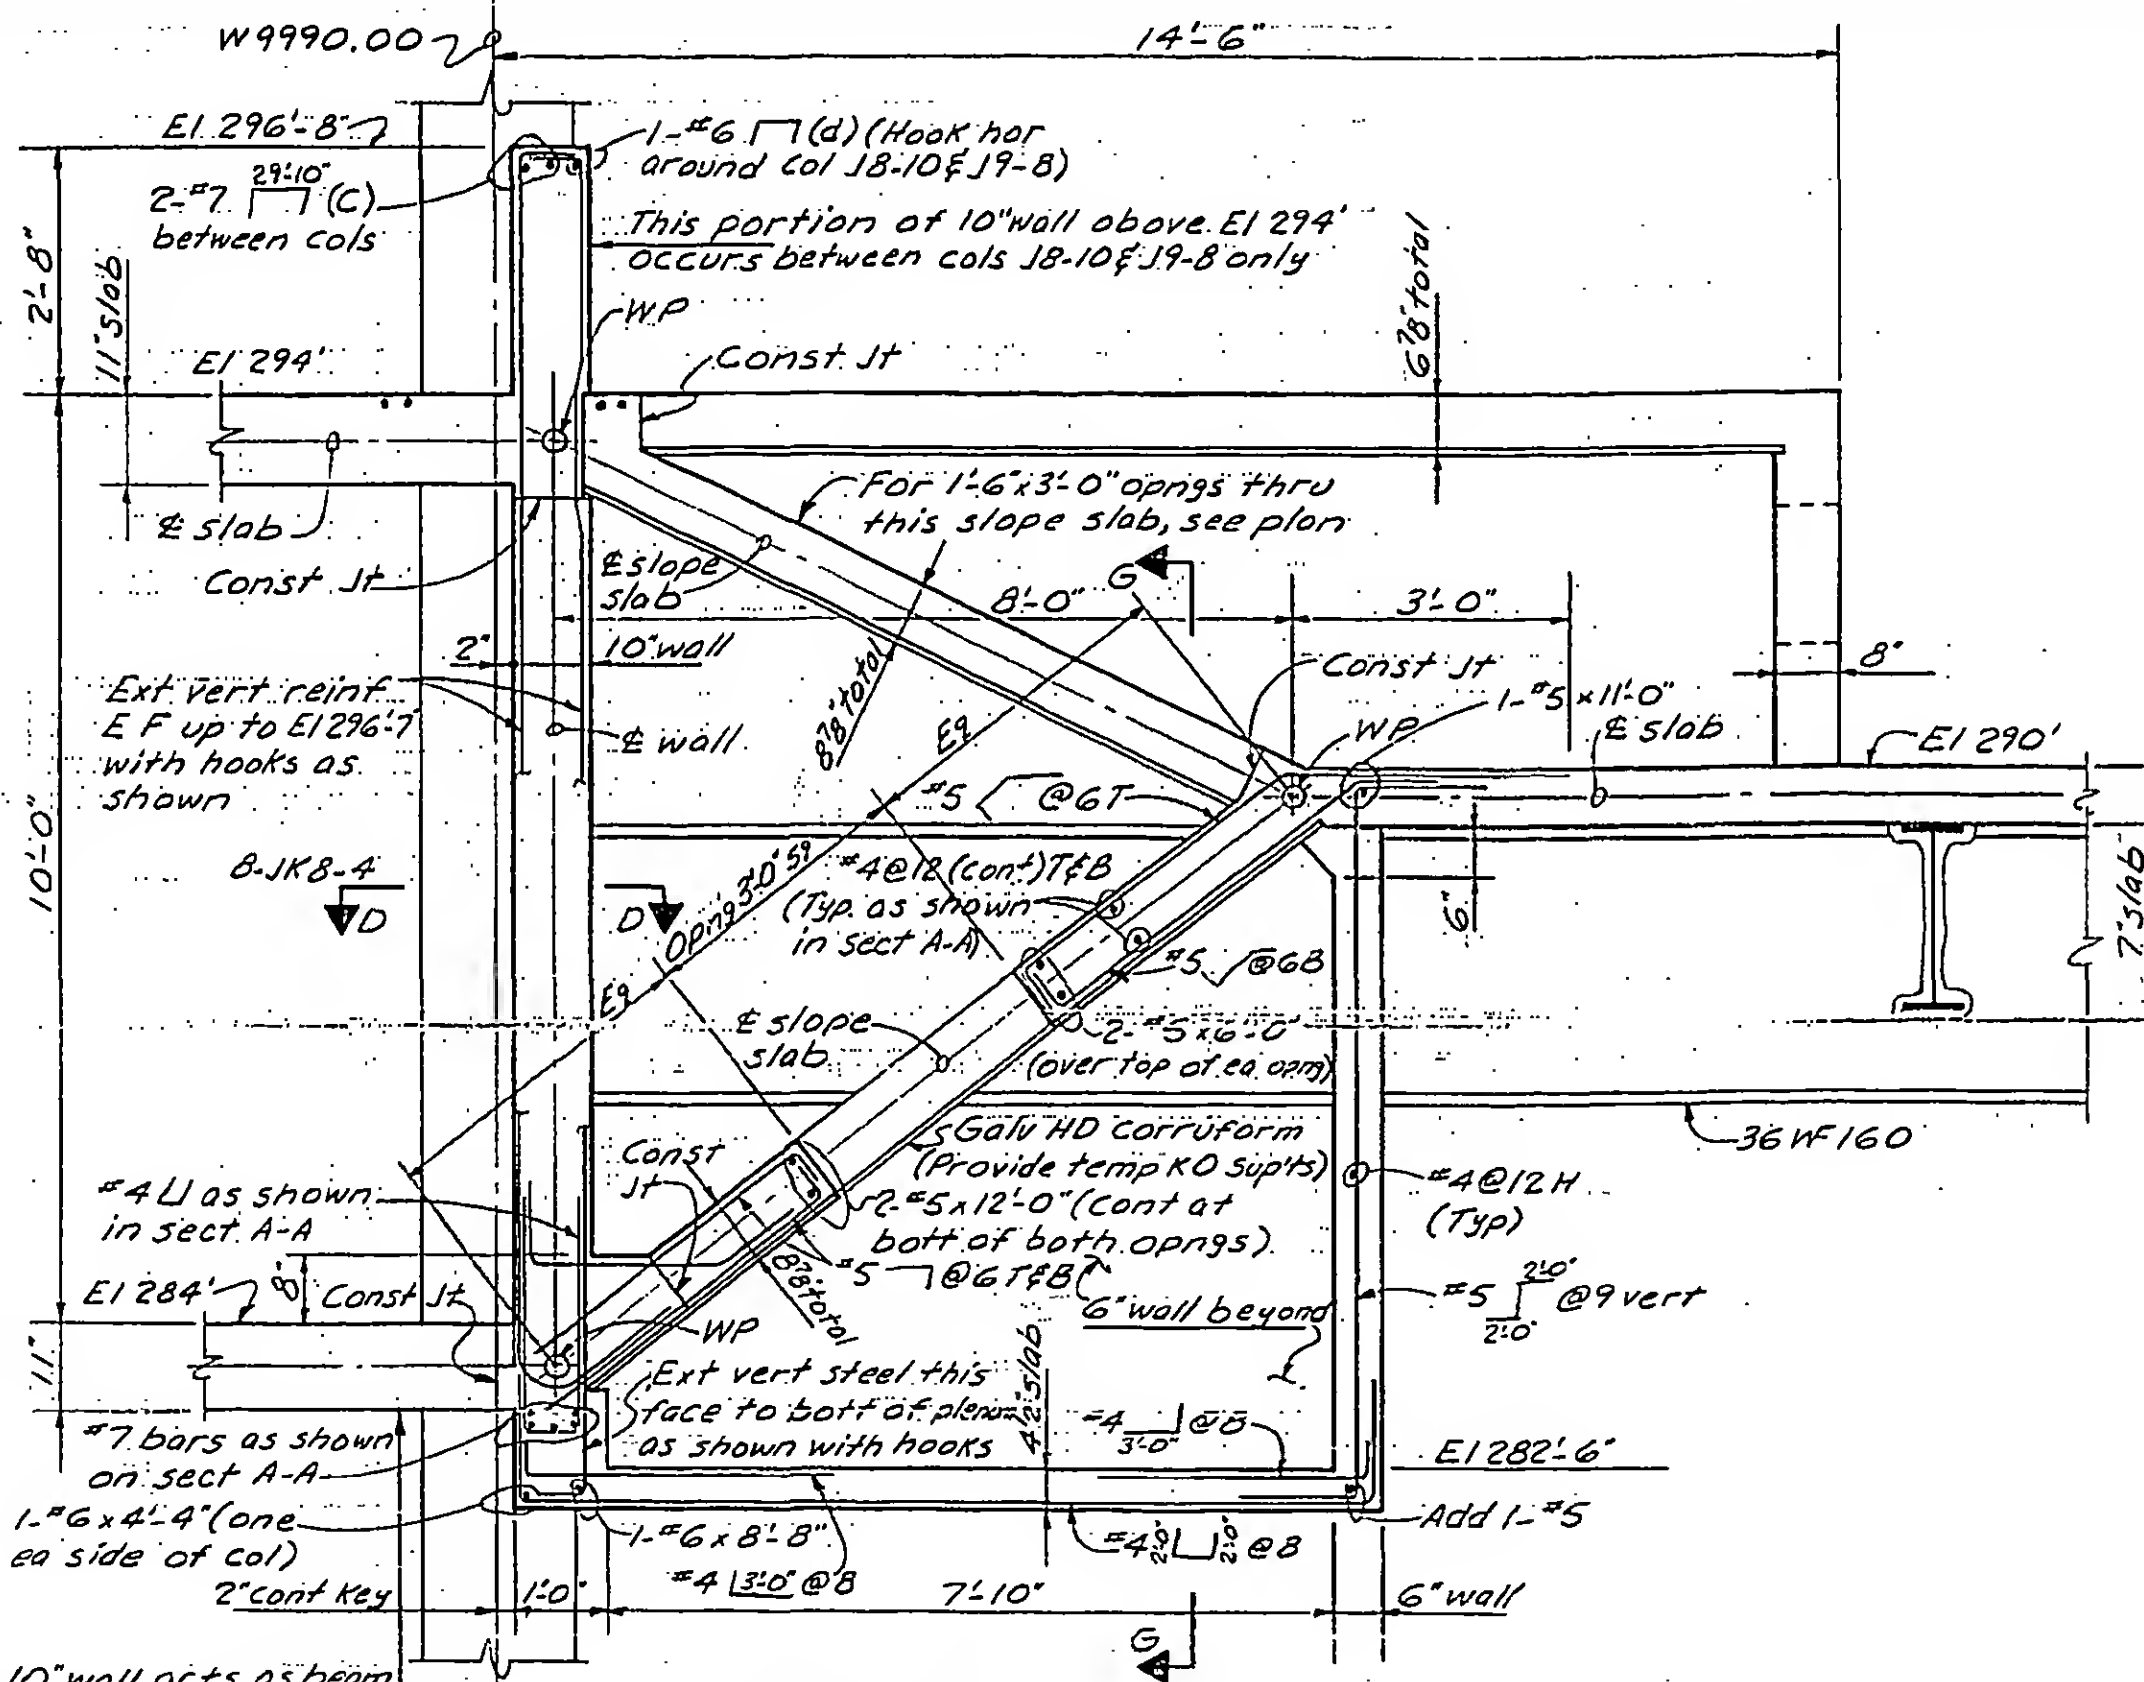 W9990.00
14'-6"
El 296'-8"
1-#6 (d) (Hook hor
around col J8-10 & J9-8)
29'-10"
2-#7 (C)
between cols
This portion of 10" wall above El 294'
occurs between cols J8-10 & J9-8 only
2'-8"
11" slab
6⅞" total
WP
El 294'
Const Jt
For 1'-6" x 3'-0" opngs thru
this slope slab, see plan
℄ slab
Const Jt
℄ slope
slab
G
8'-0"
3'-0"
2"
10" wall
8⅞" total
Const Jt
8"
Ext vert reinf
E F up to El 296'-7"
with hooks as
shown
1-#5 x 11'-0"
℄ wall
Eq
WP
℄ slab
El 290'
#5 @6T
10'-0"
8-JK8-4
D
D
Opn'g 3'-0" sq
#4@12 (cont) T&B
(Typ. as shown
in sect A-A)
6"
7" slab
#5 @6B
Eq
℄ slope
slab
2-#5x6'-0"
(over top of ea opng)
Galv HD corruform
(Provide temp KO sup'ts)
36 WF 160
Const
Jt
#4@12 H
(Typ)
#4 as shown
in sect. A-A
2-#5x12'-0" (Cont at
bott of both opngs)
8"
#5 @6 T&B
8⅞" total
El 284'
Const Jt
6" wall beyond
#5 2'-0" 2'-0" @9 vert
WP
11"
4½" slab
Ext vert steel this
face to bott of plenum
as shown with hooks
#4 3'-0" @8
#7 bars as shown
on sect A-A
El 282'-6"
1-#6 x 4'-4" (one
ea side of col)
Add 1-#5
1-#6 x 8'-8"
#4 2'-0" 2'-0" @8
#4 3'-0" @8
2" cont key
1'-0"
7'-10"
6" wall
G
10" wall acts as beam